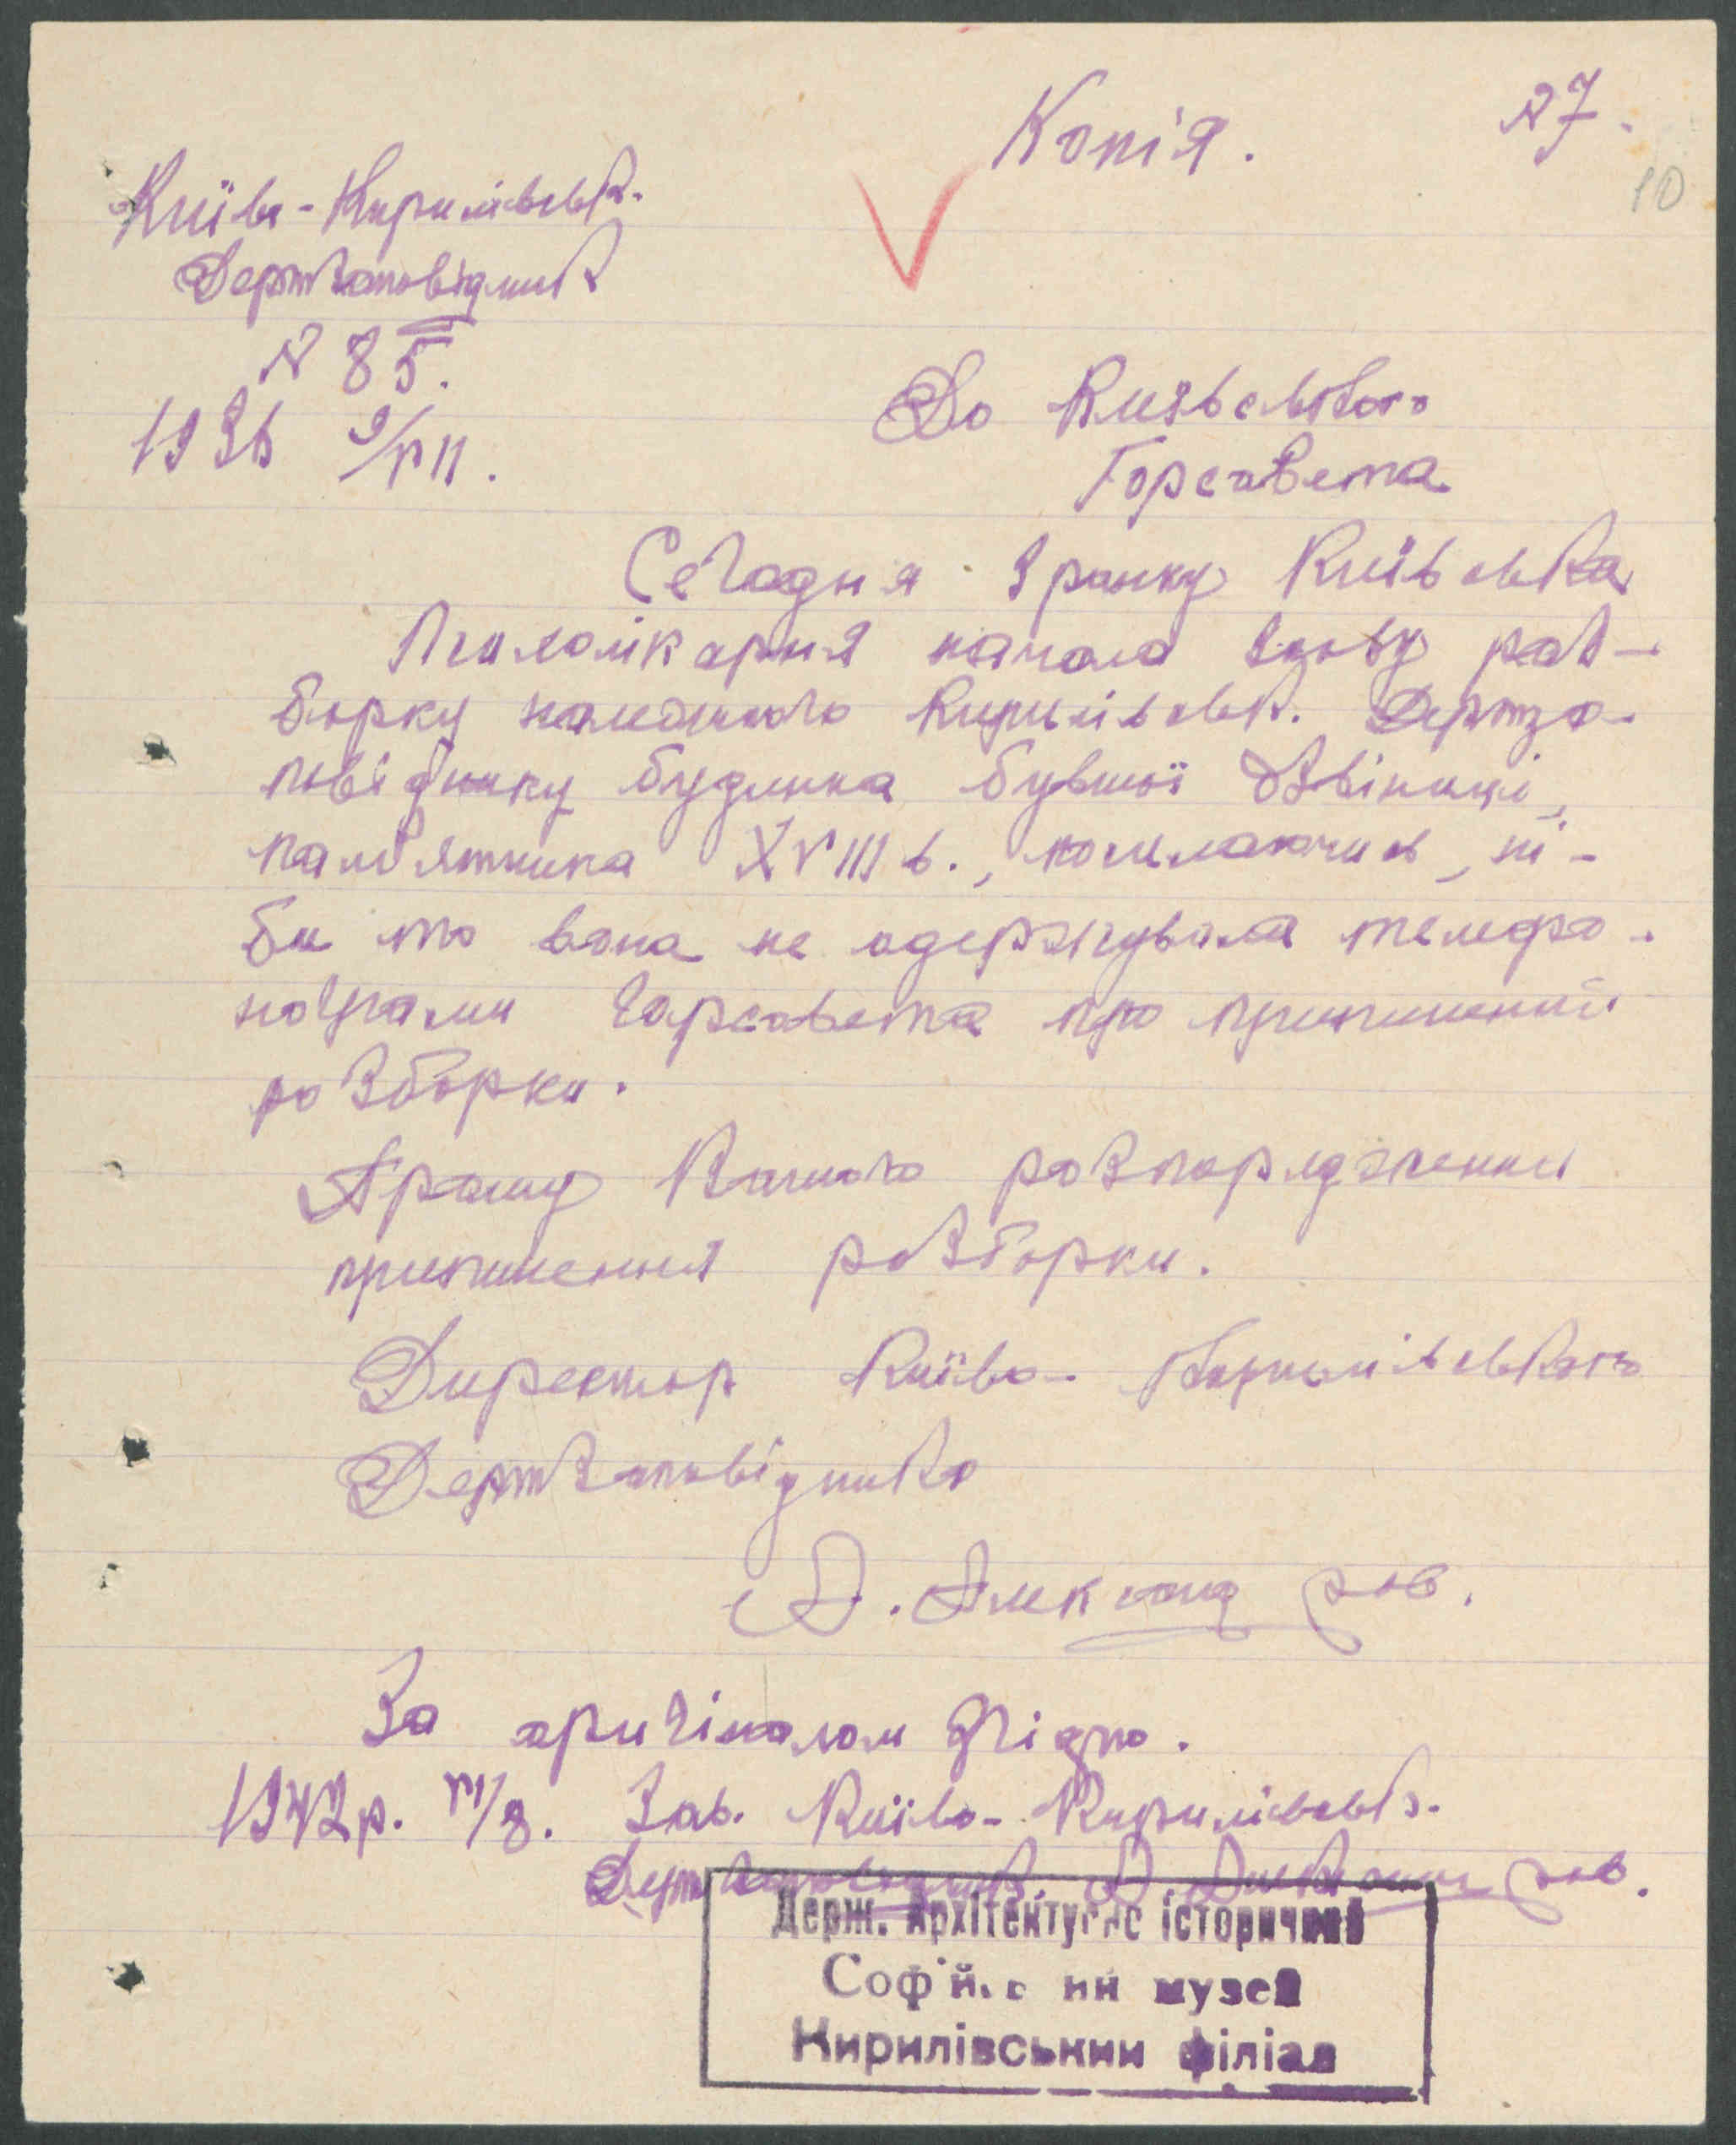 Копія.
№ 7.
10
Київо-Кирилівськ.
Держзаповідник
№ 85.
1936 9/VII.
До Київського
Горсовета
Сегодня зранку Київська
Психолікарня начала знову роз-
борку належного Кирилівськ. Держза-
повіднику будинка бувшої дзвіниці,
пам'ятника XVIII в., посилаючись, ні-
би то вона не одержувала телефо-
нограми горсовета про припинення
розборки.
Прошу Вашого розпорядження
припинення розборки.
Директор Київо-Кирилівського
Держзаповідника
Д. Александров.
За оригіналом згідно.
1942 р. VI/8. Зав. Київо-Кирилівськ.
Держзаповідник. Д. Александров.
Держ. Архітектурно історичний
Софійський музей
Кирилівський філіал